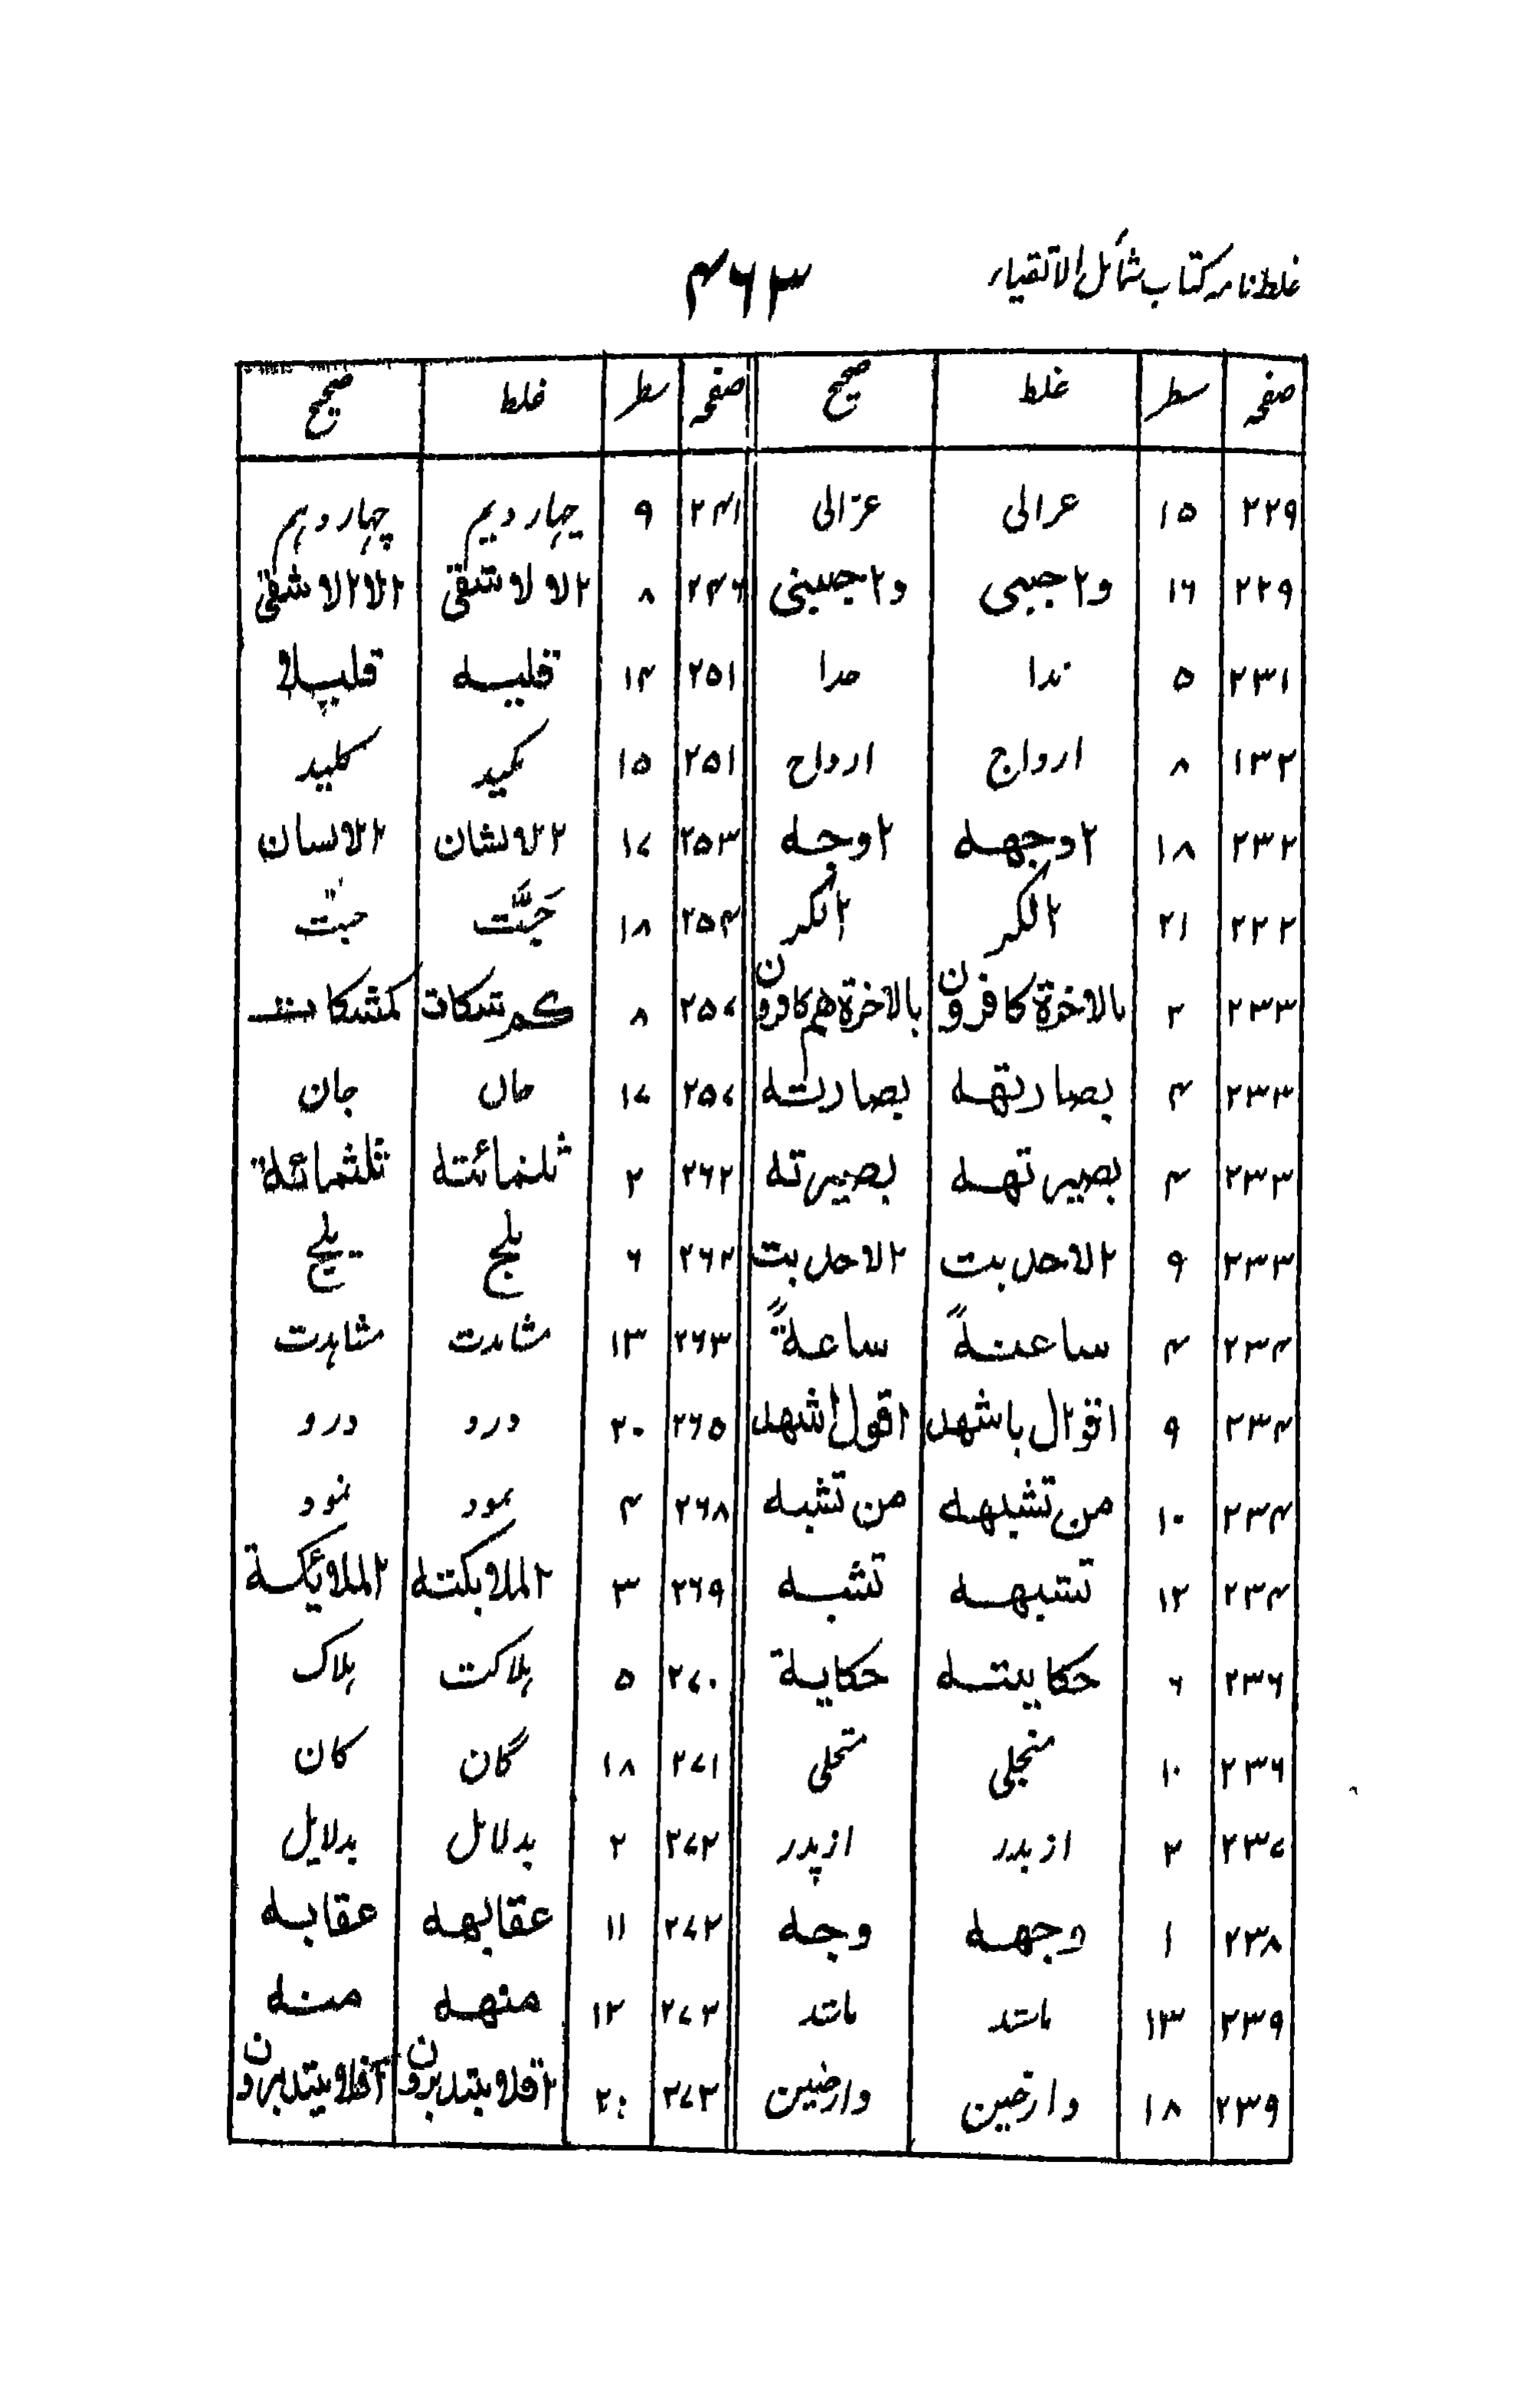 غلطنامہ کتاب شمائل الاتقیاء ۴۶۳
صفحہ سطر غلط صحیح صفحہ سطر غلط صحیح
۲۲۹ ۱۵ عرالی عزالی ۲۴۱ ۹ چہار دیم چہار دہم
۲۲۹ ۱۶ واجببی واجبینی ۲۴۶ ۸ الا لا شقی الا الا شقی
۲۳۱ ۵ ندا مدا ۲۵۱ ۱۴ قلیه قلیلا
۱۳۲ ۸ ارواج ارواح ۲۵۱ ۱۵ کمید کلید
۲۳۲ ۱۸ اوجهه اوجه ۲۵۳ ۱۷ الانشان الانسان
۲۲۲ ۲۱ الکر انکر ۲۵۴ ۱۸
۲۳۳ ۲ بالاخرة کافرون بالاخرة هم کافرون ۲۵۷ ۸ کمر شکات کمشکات
۲۳۳ ۴ بصارتهه بصارته ۲۵۷ ۱۷ حان جان
۲۳۳ ۴ بصیرتهه بصیرته ۲۶۲ ۲ ثلنمائته ثلثمائة
۲۳۳ ۹ ۲۶۲ ۶ یلج یلج
۲۳۴ ۴ ساعتةً ساعةً ۲۶۳ ۱۳ مشامدت مشاہدت
۲۳۴ ۹ اقوال باشهد اقول اشهد ۲۶۵ ۲۰ درو درو
۲۳۴ ۱۰ من تشبهه من تشبه ۲۶۸ ۴ بمود نمود
۲۳۴ ۱۲ تشبهه تشبه ۲۶۹ ۳ الملابکته الملائکة
۲۳۶ ۶ حکایته حکایة ۲۷۰ ۵ ہلاکت ہلاک
۲۳۶ ۱۰ منجلی متحلی ۲۷۱ ۱۸ گان کان
۲۳۷ ۲ از بدر از پدر ۲۷۲ ۲ بدلائل بدلایل
۲۳۸ ۱ وجهه وجه ۲۷۲ ۱۱ عقابهه عقابه
۲۳۹ ۱۳ ماستد مانند ۲۷۳ ۱۲ منهه منه
۲۳۹ ۱۸ وارتضین وارضین ۲۷۳ ۲۰ اقلا یتدبرون افلا یتدبرون